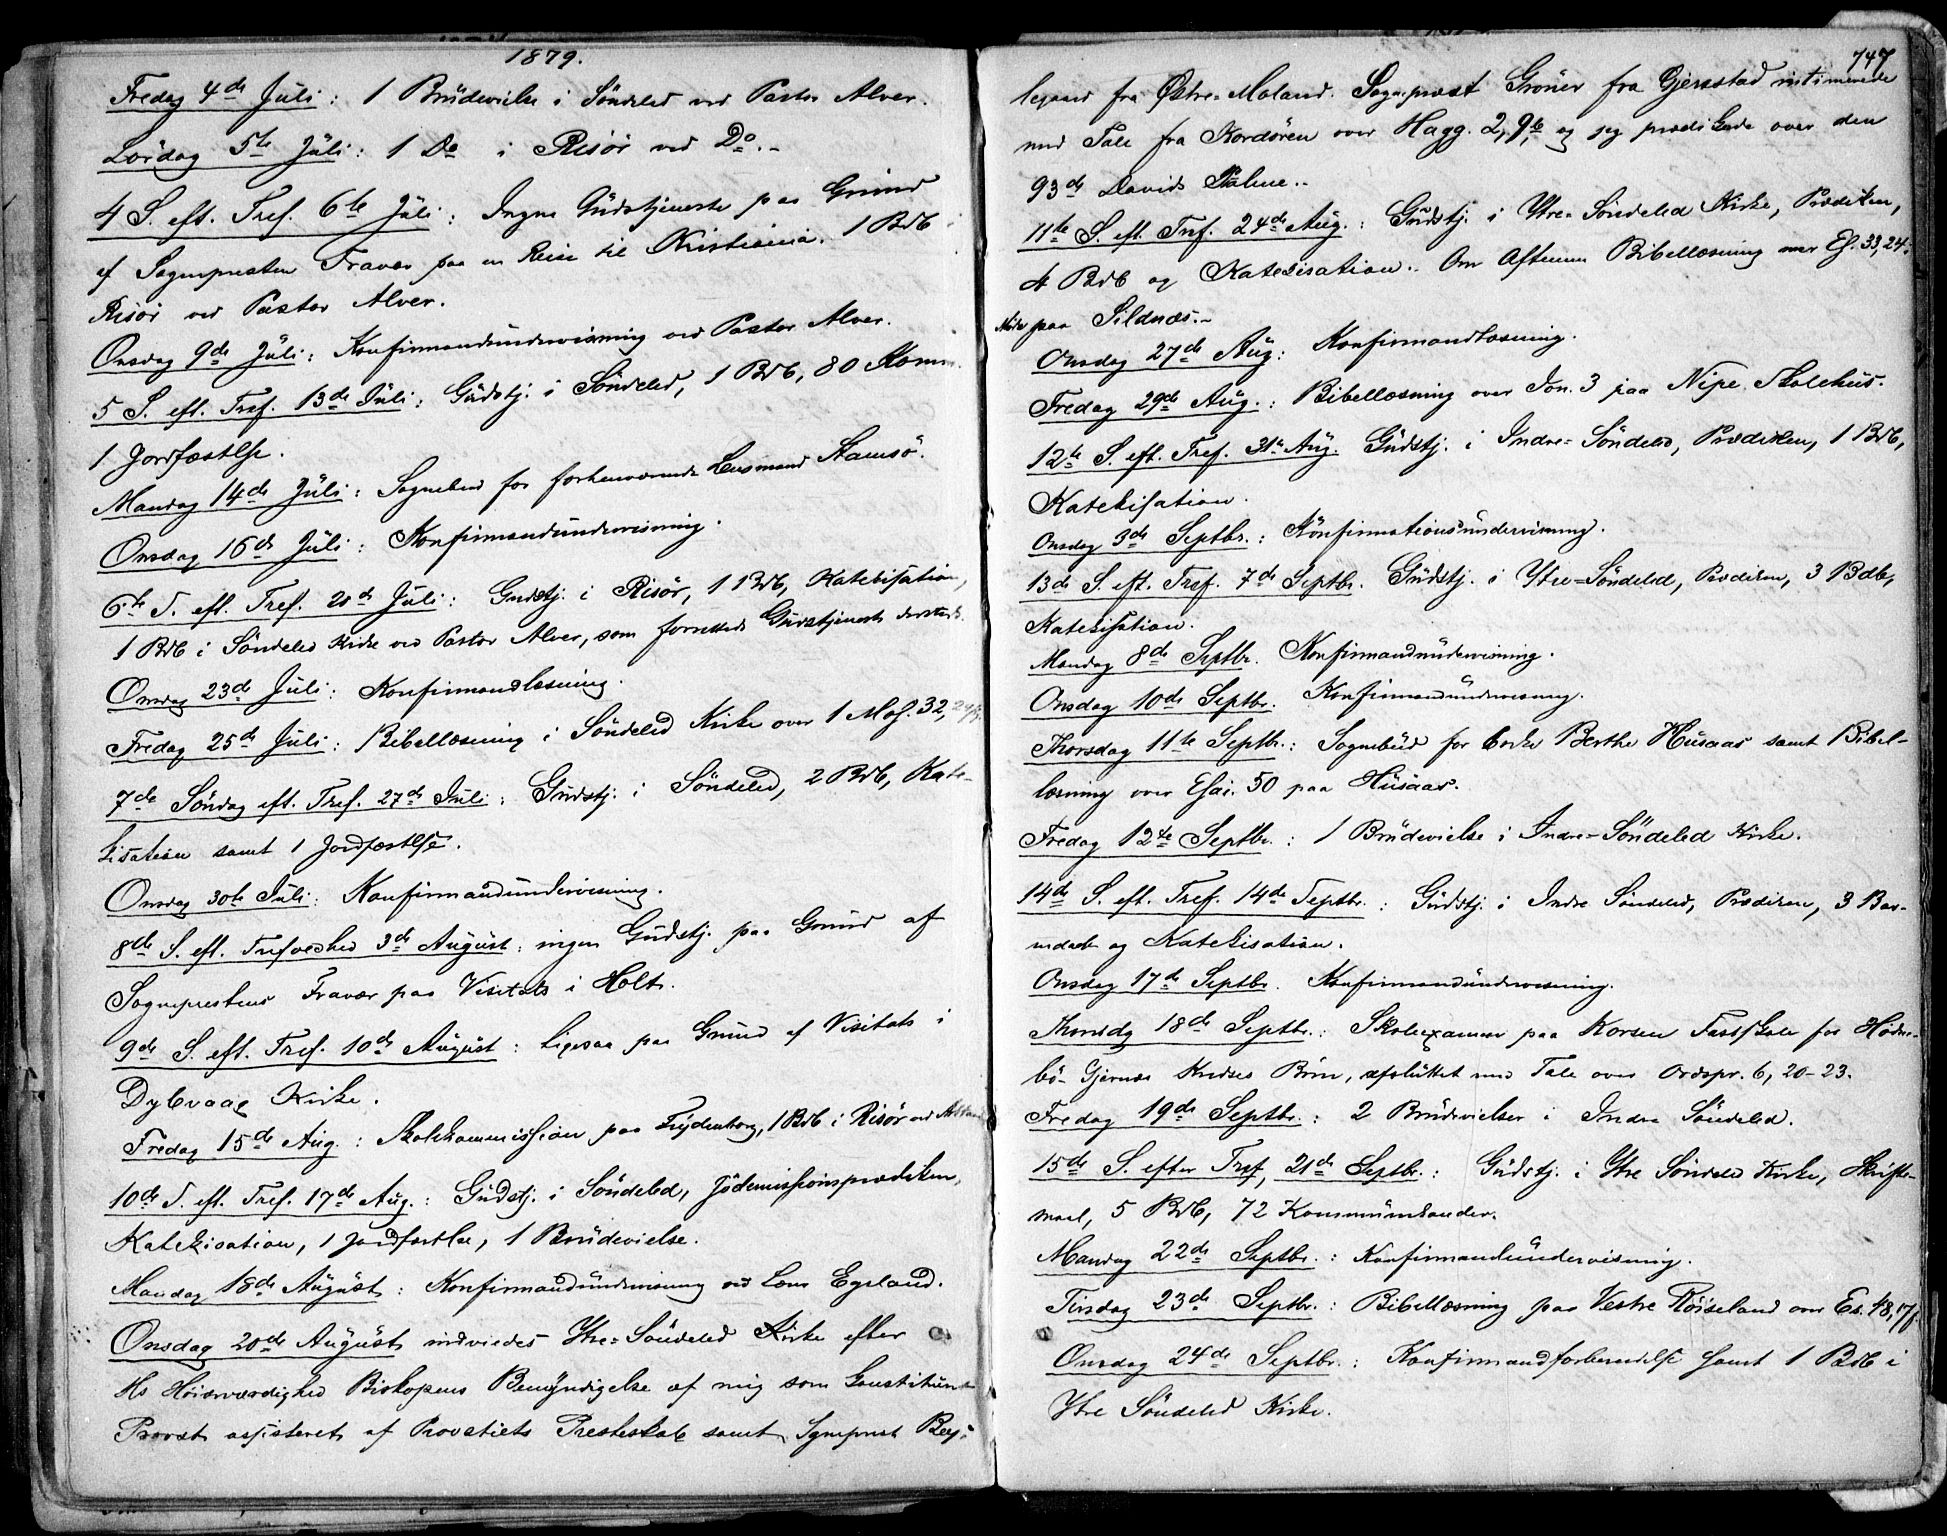 1879.
Fredag 4de Juli: 1 Brudevielse i Søndeled ved Pastor Alver.
Lørdag 5te Juli: 1 Do i Risør ved Do.-
4 S. eft. Tref. 6te Juli: Ingen Gudstjeneste paa Grund
af Sognepresten Fravær paa en Reise til Kristiania. 1 Bdb i
Risør ved Pastor Alver.
Onsdag 9de Juli: Konfirmandundervisning ved Pastor Alver.
5 S. eft. Tref. 13de Juli: Gudstj. i Søndeled, 1 Bdb, 80 Komm.
1 Jordfæstelse.
Mandag 14de Juli: Sognebud for forhenværende Lensmand Stamsø.
Onsdag 16de Juli: Konfirmandundervisning.
6te S. eft. Tref. 20de Juli: Gudstj. i Risør, 1 Bdb, Katekisation,
1 Bdb i Søndeled Kirke ved Pastor Alver, som forrettede Gudstjeneste dersteds.
Onsdag 23de Juli: Konfirmandlæsning.
Fredag 25de Juli: Bibellæsning i Søndeled Kirke over 1 Mos. 32,
7de Søndag eft. Tref. 27de Juli: Gudstj. i Søndeled, 2 Bdb, Kate-
kisation samt 1 Jordfæstelse.
Onsdag 30te Juli: Konfirmandundervisning.
8de S. eft. Trefoldhed 3de August: ingen Gudstj. paa Grund af
Sogneprestens Fravær paa Visitats i Holt.
9de S. eft. Tref. 10de August: Ligesaa paa Grund af Visitats i
Dybvaag Kirke.
Fredag 15de Aug.: Skolekommission paa Frydenborg, 1 Bdb i Risør ved
10de S. eft. Tref. 17de Aug.: Gudstj. i Søndeled, Jødemissionsprædiken,
Katekisation, 1 Jordfæstelse, 1 Brudevielse.
Mandag 18de August: Konfirmandundervisning ved Lærer Egeland.
Onsdag 20de August indviedes Ytre-Søndeled Kirke efter
Hs Høiærværdighed Biskopens Bemyndigelse af mig som Constitueret
Provst assisteret af Provstiets Presteskab samt Sogneprest Bey-
747
legaard fra Østre-Moland. Sogneprest Grøner fra Gjerestad intimerede
med Tale fra Kordøren over Hagg. 2, 9b og jeg prædikede over den
93de Davids Psalme..
11te S. eft. Tref. 24de Aug.: Gudstj. i Ytre-Søndeled Kirke, Prædiken,
4 Bdb og Katekisation.. Om Aftenen Bibellæsning over Es. 33, 24.
paa Sildnæs.-
Onsdag 27de Aug: Konfirmandlæsning.
Fredag 29de Aug.: Bibellæsning over Jon. 3 paa Nipe Skolehus.
12te S. eft. Tref. 31te Aug. Gudstj. i Indre-Søndeled, Prædiken, 1 Bdb,
Katekisation.
Onsdag 3de Septbr.: Konfirmationsundervisning.
13de S. eft. Tref. 7de Septbr. Gudstj. i Ytre-Søndeled, Prædiken, 3 Bdb,
Katekisation.
Mandag 8de Septbr. Konfirmandundervisning.
Onsdag 10de Septbr. Konfirmandundervisning.
Thorsdag 11te Septbr.: Sognebud for Enke Berthe Husaas samt Bibel-
læsning over Esai. 50 paa Husaas.
Fredag 12te Septbr.: 1 Brudevielse i Indre-Søndeled Kirke.
14de S. eft. Tref. 14de Septbr.: Gudstj. i Indre Søndeled, Prædiken, 3 Bar-
nedaab og Katekisation.
Onsdag 17de Septbr. Konfirmandundervisning.
Thorsdg 18de Septbr.: Skoleexamen paa Korsen Fastskole for Hødne-
bø-Gjernæs Kredses Børn, afsluttet med Tale over Ordspr. 6, 20-23.
Fredag 19de Septbr.: 2 Brudevielser i Indre Søndeled.
15de S. efter Tref, 21de Septbr.: Gudstj. i Ytre Søndeled Kirke, Skrifte-
maal, 5 Bdb, 72 Kommunikander.
Mandag 22de Septbr.: Konfirmandundervisning.
Tirsdag 23de Septbr.: Bibellæsning paa Vestre Røiseland over Es. 48, 17f.
Onsdag 24de Septbr.: Konfirmandforberedelse samt 1 Bdb i
Ytre Søndeled Kirke.